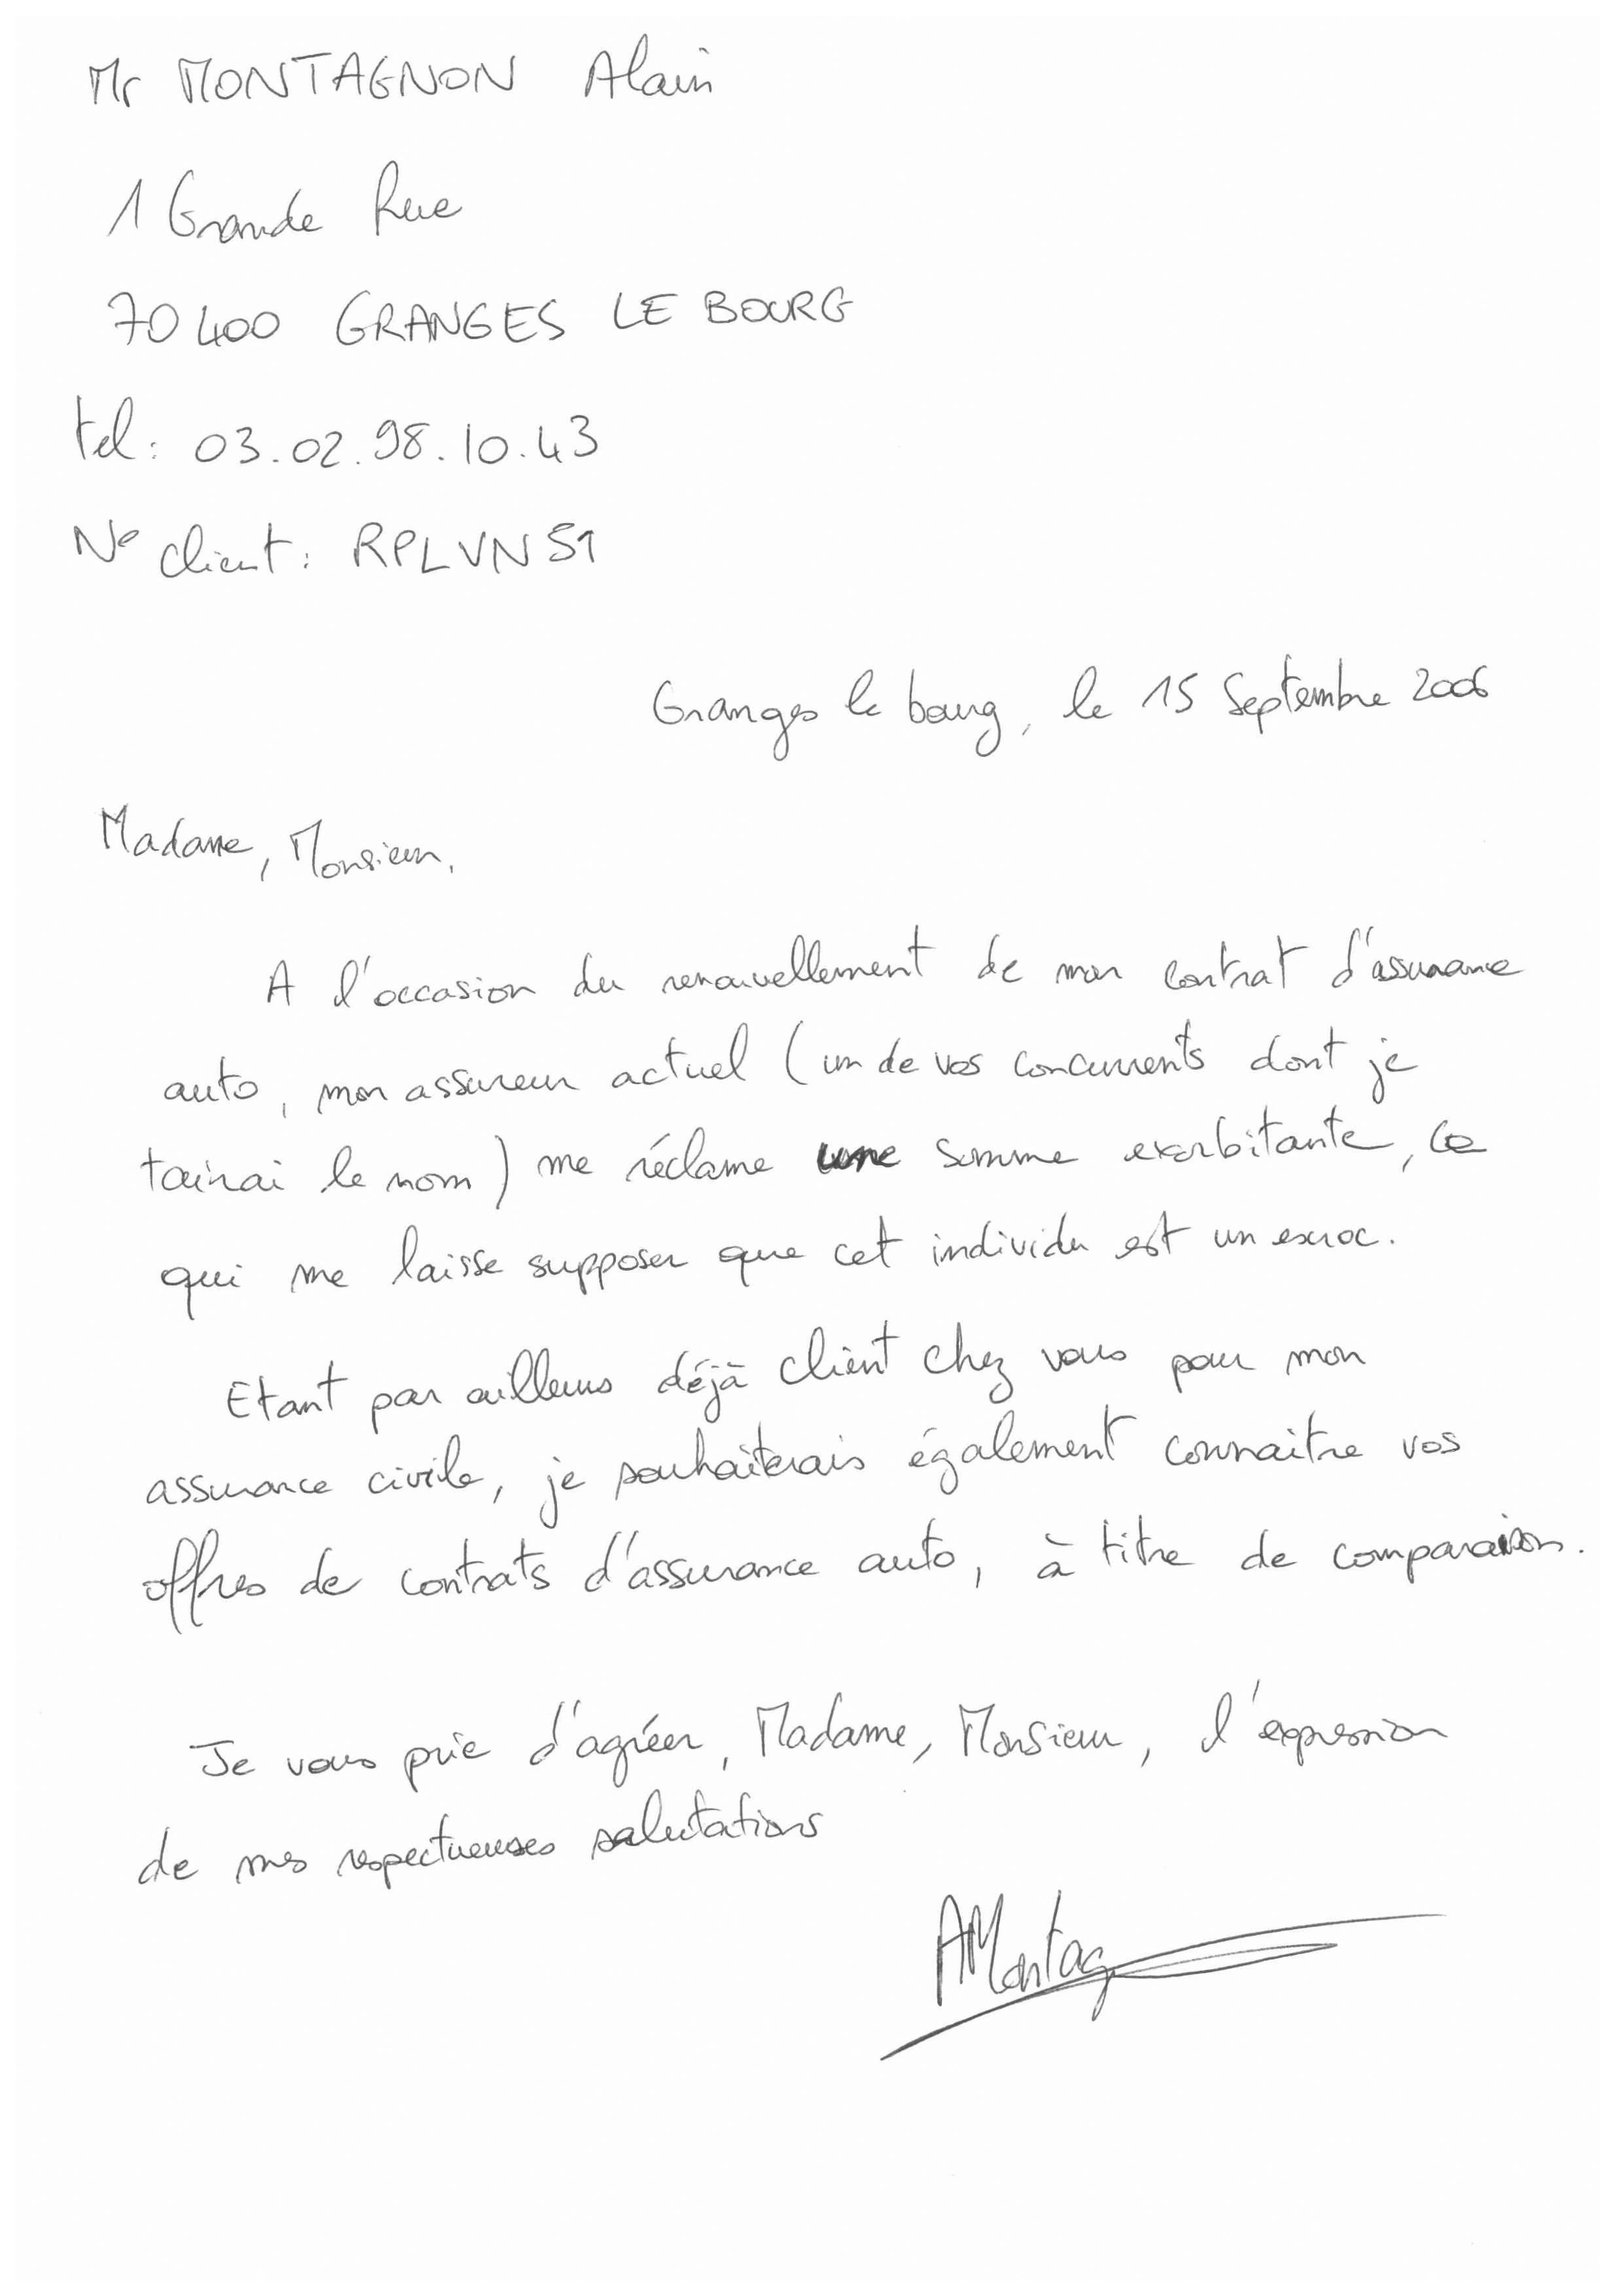 Mr MONTAGNON Alain
1 Grande Rue
70400 GRANGES LE BOURG
tel : 03.02.98.10.43
N° client : RPLVN51
Granges le bourg, le 15 Septembre 2006
Madame, Monsieur,
A l'occasion du renouvellement de mon contrat d'assurance
auto, mon assureur actuel (un de vos concurrents dont je
tairai le nom) me réclame une somme exorbitante, ce
qui me laisse supposer que cet individu est un escroc.
Etant par ailleurs déjà client chez vous pour mon
assurance civile, je souhaiterais également connaitre vos
offres de contrats d'assurance auto, à titre de comparaison.
Je vous prie d'agréer, Madame, Monsieur, l'expression
de mes respectueuses salutations
AMontag